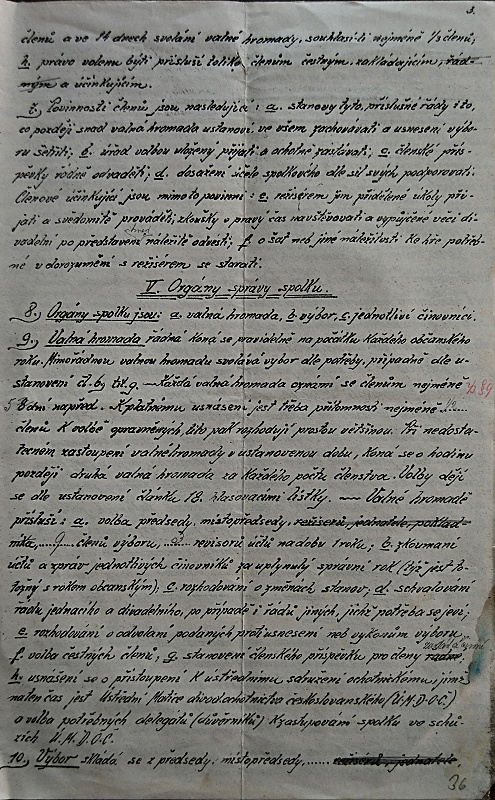 3.
členů a ve 14 dnech svolání valné hromady, souhlasí-li nejméně 1/3 členů;
h. právo volenu býti přísluší toliko členům čestným, zakládajícím, řád-
ným a účinkujícím.
7. Povinnosti členů jsou následující: a. stanovy tyto, příslušné řády i to,
co později snad valná hromada ustanoví, ve všem zachovávati a usnesení výbo-
ru šetřiti; b. úřad volbou vložený přijati a ochotně zastávati; c. členské přís-
pěvky řádně odváděti; d. dosažení účele spolkového dle sil svých podporovati.
Členové účinkující jsou mimoto povinni: e. režisérem jim přidělené úkoly při-
jati a svědomitě prováděti, zkoušky v pravý čas navštěvovati a vypůjčené věci di-
vadelní po představení náležitě odvésti; f. o šat neb jiné náležitosti ke hře potřeb-
né v dorozumění s režisérem se starati.
V. Orgány správy spolku.
8. Orgány spolku jsou: a. valná hromada, b. výbor, c. jednotliví činovníci.
9. Valná hromada řádná koná se pravidelně na počátku každého občanského
roku. Mimořádnou valnou hromadu svolává výbor dle potřeby, případně dle u-
stanovení čl. 6, lit. g. — Každá valná hromada oznámí se členům nejméně
dní napřed. K platnému usnášení jest třeba přítomnosti nejméně
členů k volbě oprávněných, kteří pak rozhodují prostou většinou. Při nedosta-
tečném zastoupení valné hromady v ustanovenou dobu, koná se o hodinu
později druhá valná hromada za každého počtu členstva. Volby dějí
se dle ustanovení článku 18. hlasovacími lístky. — Valné hromadě
přísluší: a. volba předsedy, místopředsedy, režisérů, jednatele, poklad-
níka, 9 členů výboru, 2 revisorů účtů na dobu 1 roku; b. zkoumání
účtů a zpráv jednotlivých činovníků za uplynulý správní rok (týž jest to-
tožný s rokem občanským); c. rozhodování o změnách stanov; d. schvalování
řádu jednacího a divadelního, po případě i řádů jiných, jichž potřeba se jeví;
e. rozhodování o odvolání podaných proti usnesení neb výkonům výboru;
f. volba čestných členů; g. stanovení členského příspěvku pro členy řádné;
h. usnášení se o přistoupení k ústřednímu sdružení ochotnickému, jímž
na ten čas jest Ústřední Matice divad. ochotnictva československého (Ú.M.D.O.Č.)
a volba potřebných delegátů (důvěrníků) k zastupování spolku ve schů-
zích Ú.M.D.O.Č.
10. Výbor skládá se z předsedy, místopředsedy, ...... režisérů, jednatele,
36